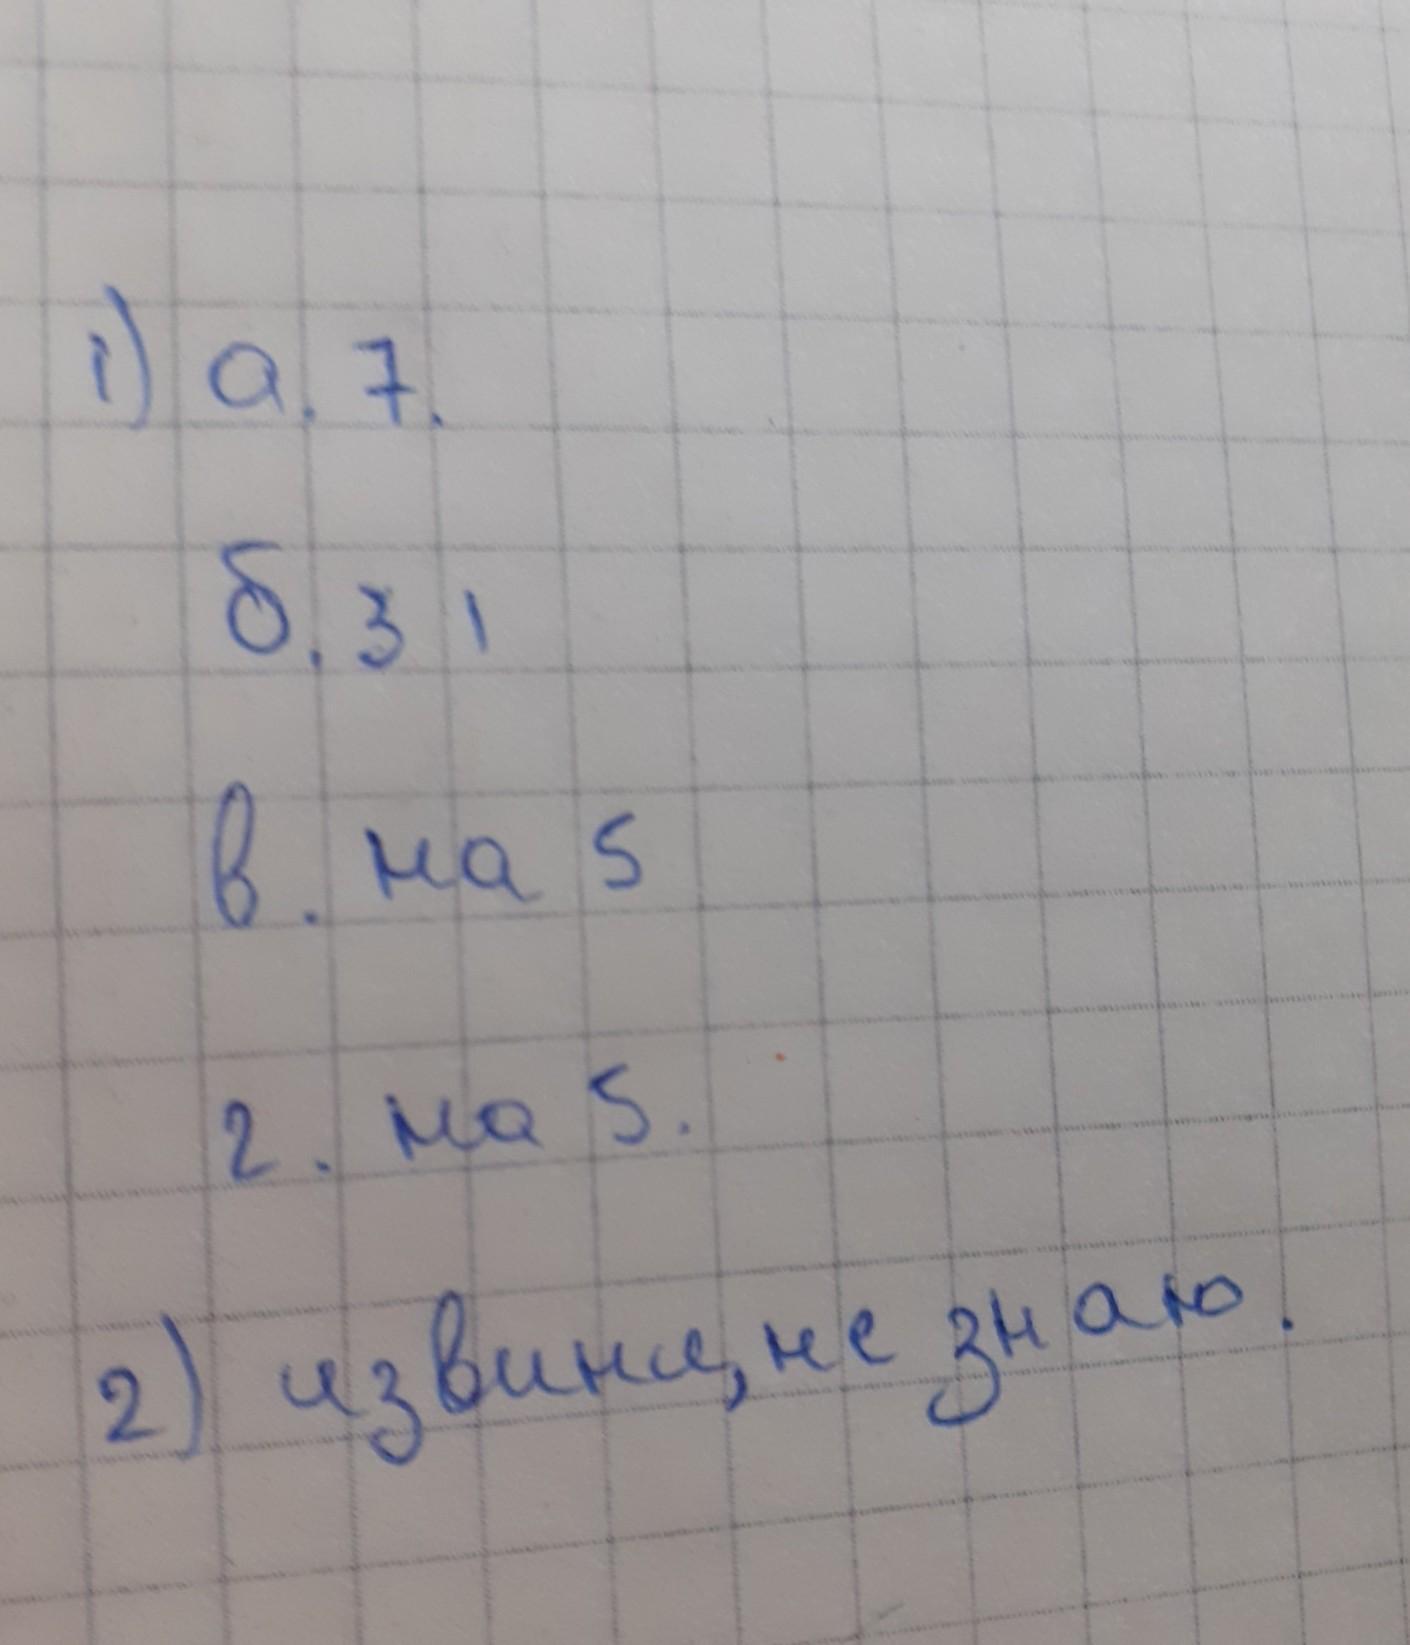 1) а. 7.
б. 3 1
в. на 5
г. на 5.
2) извини, не знаю.